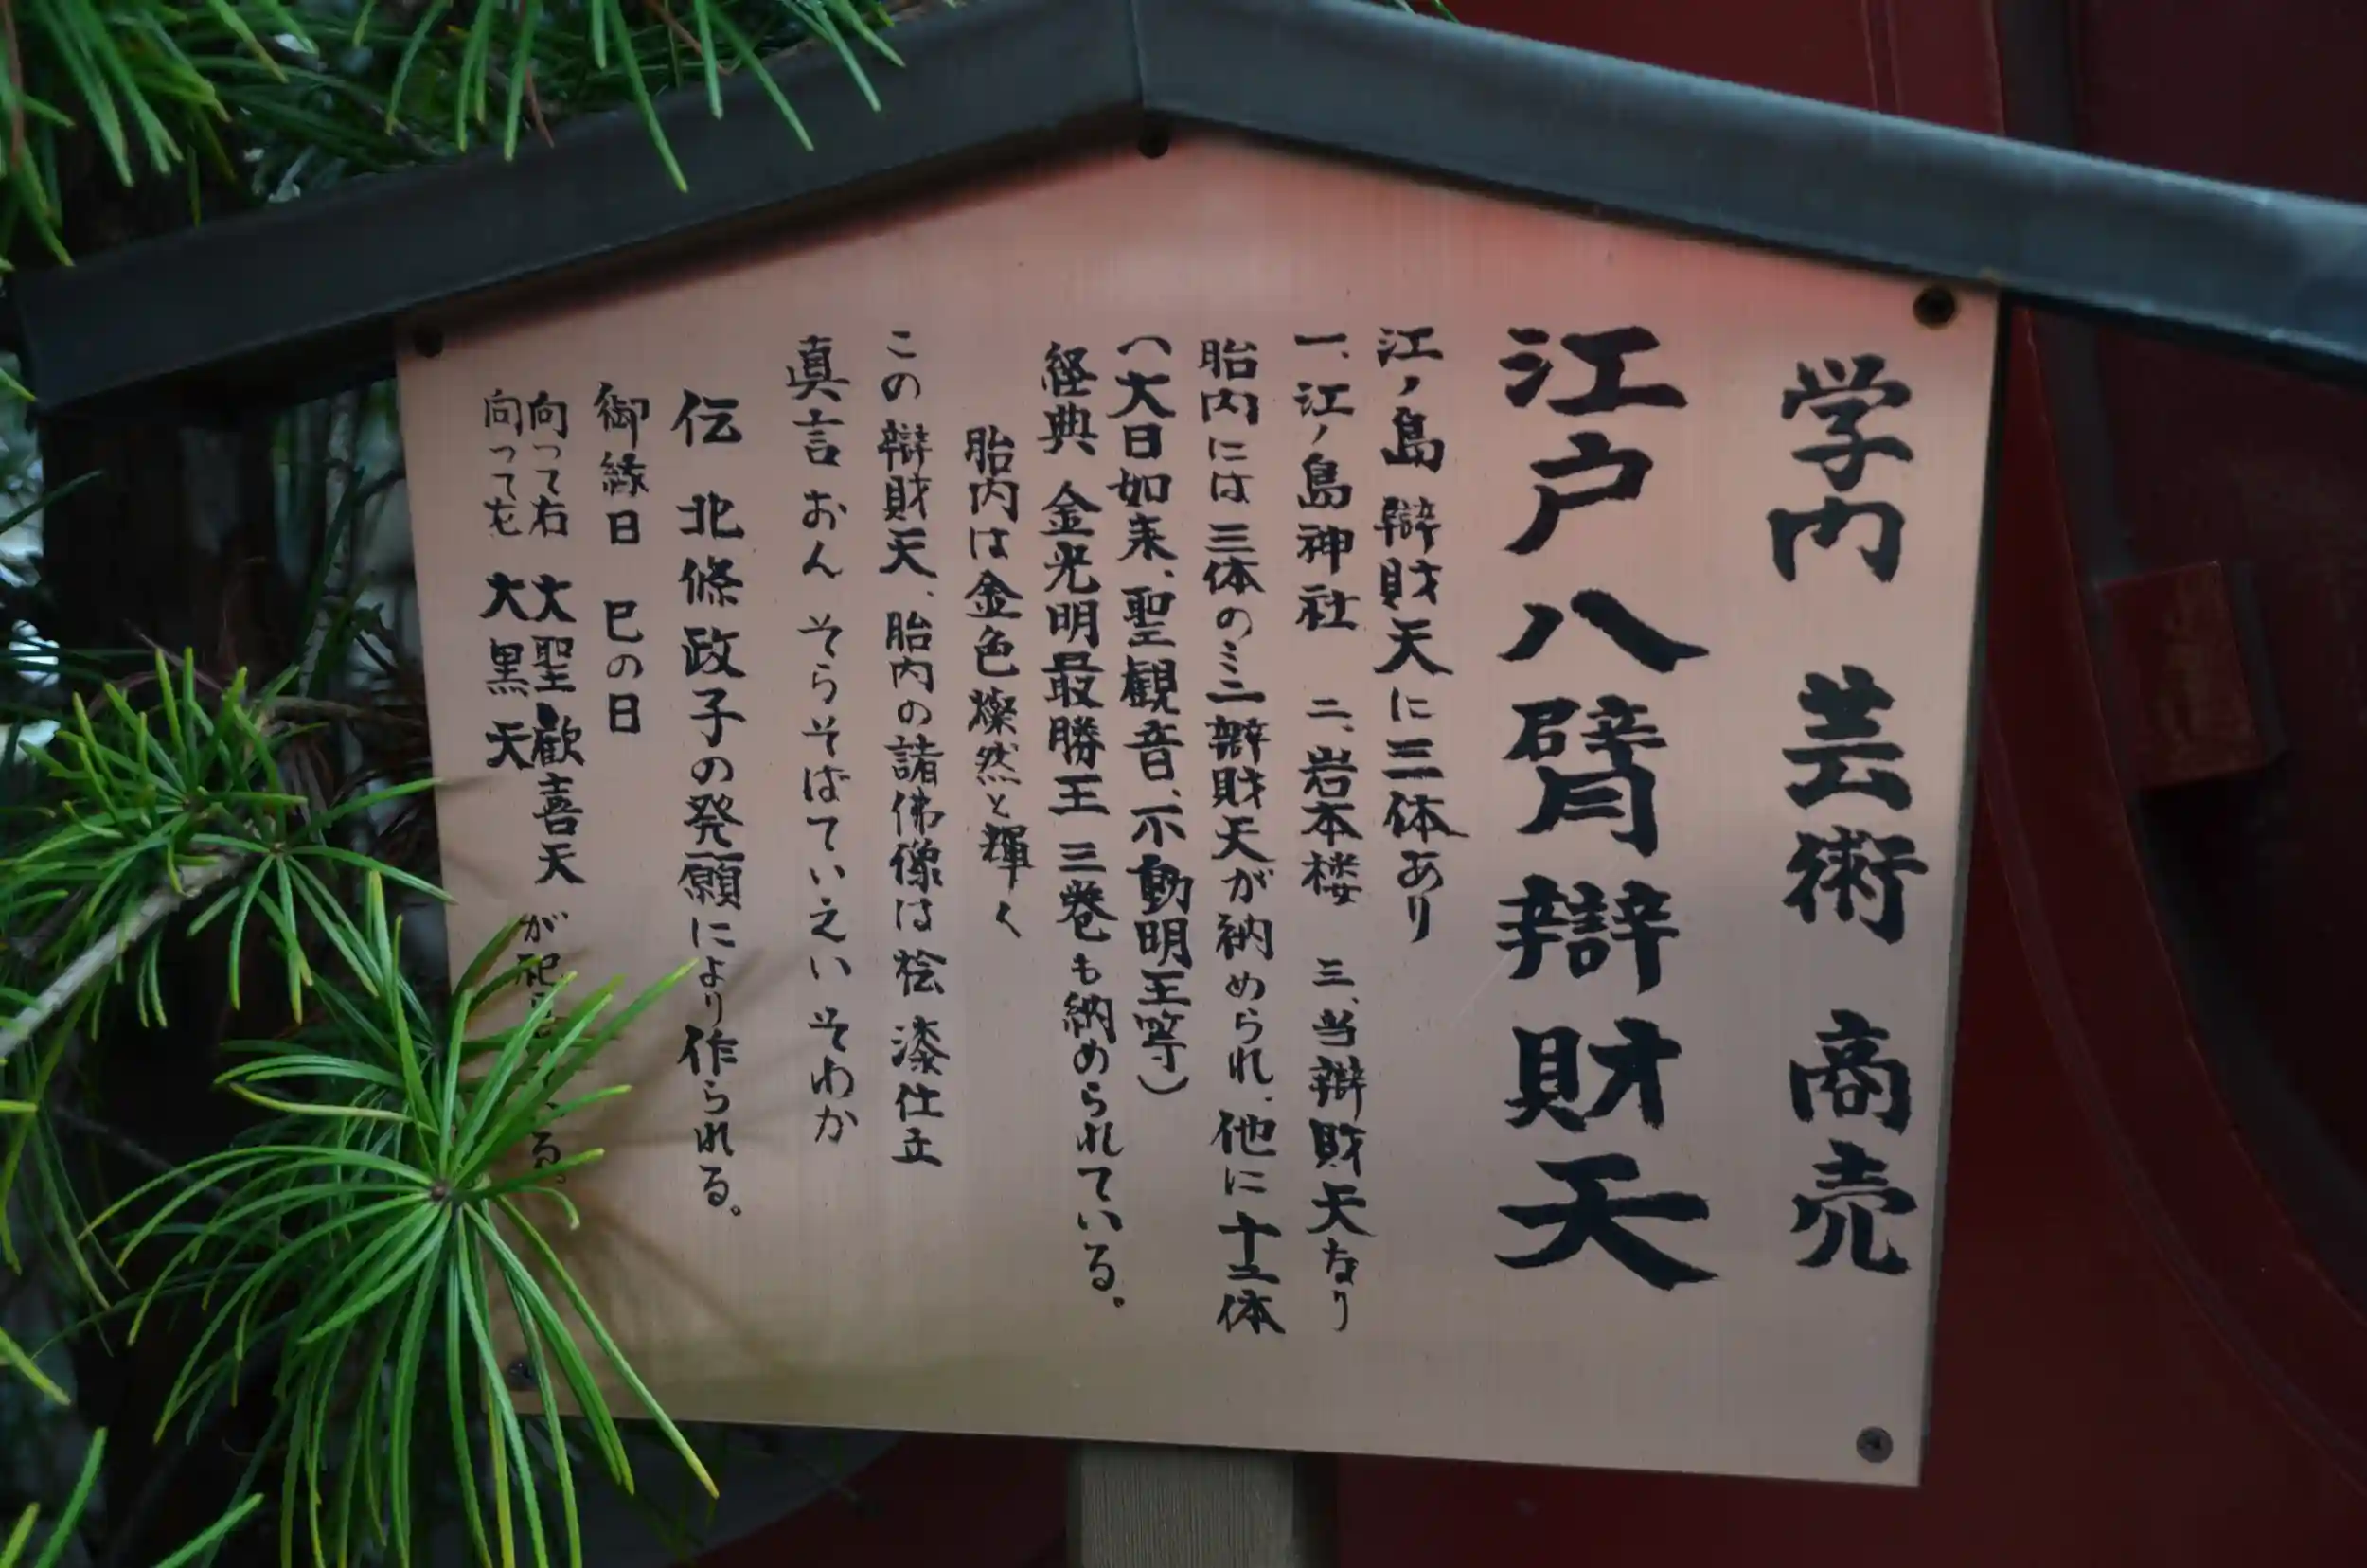 学内　芸術　商売
江戸八臂辯財天
江ノ島 辯財天に三体あり
一、江ノ島神社　二、岩本楼　三、当辯財天なり
胎内には三体のミニ辯財天が納められ、他に十二体
（大日如来、聖観音、不動明王等）
経典 金光明最勝王 三巻も納められている。
胎内は金色燦然と輝く
この辯財天、胎内の諸佛像は桧 漆仕立
真言 おん そらそばていえい そわか
伝 北條政子の発願により作られる。
御縁日 巳の日
向って右 大聖歓喜天
向って左 大黒天
が祀
る。